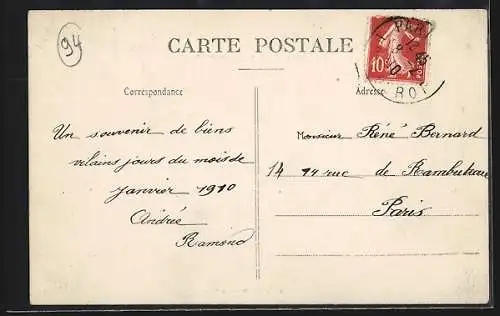 94
CARTE POSTALE
Correspondance
Adresse
Un souvenir de biens
vilains jours du mois de
Janvier 1910
Andrée
Ramond
Monsieur René Bernard
14 rue de Rambuteau
Paris
10